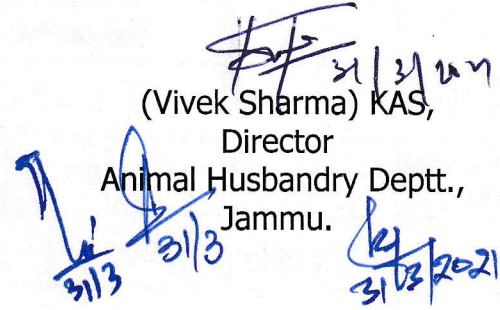 31/3/2021
(Vivek Sharma) KAS,
Director
Animal Husbandry Deptt.,
Jammu.
31/3
31/3
31/3/2021